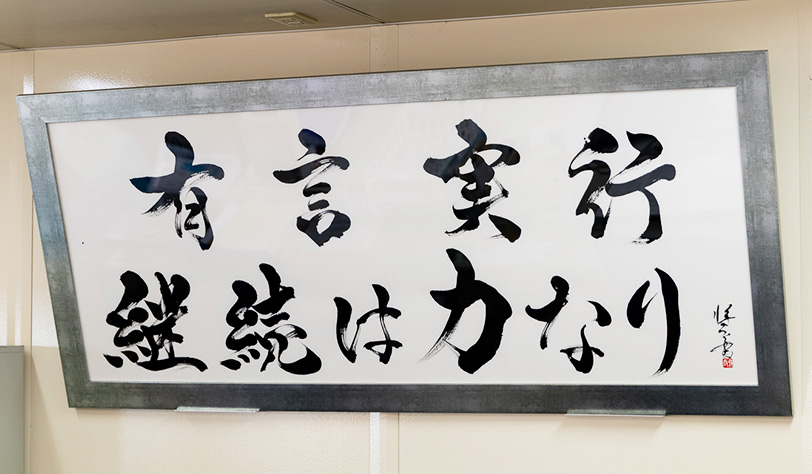 有言実行
継続は力なり